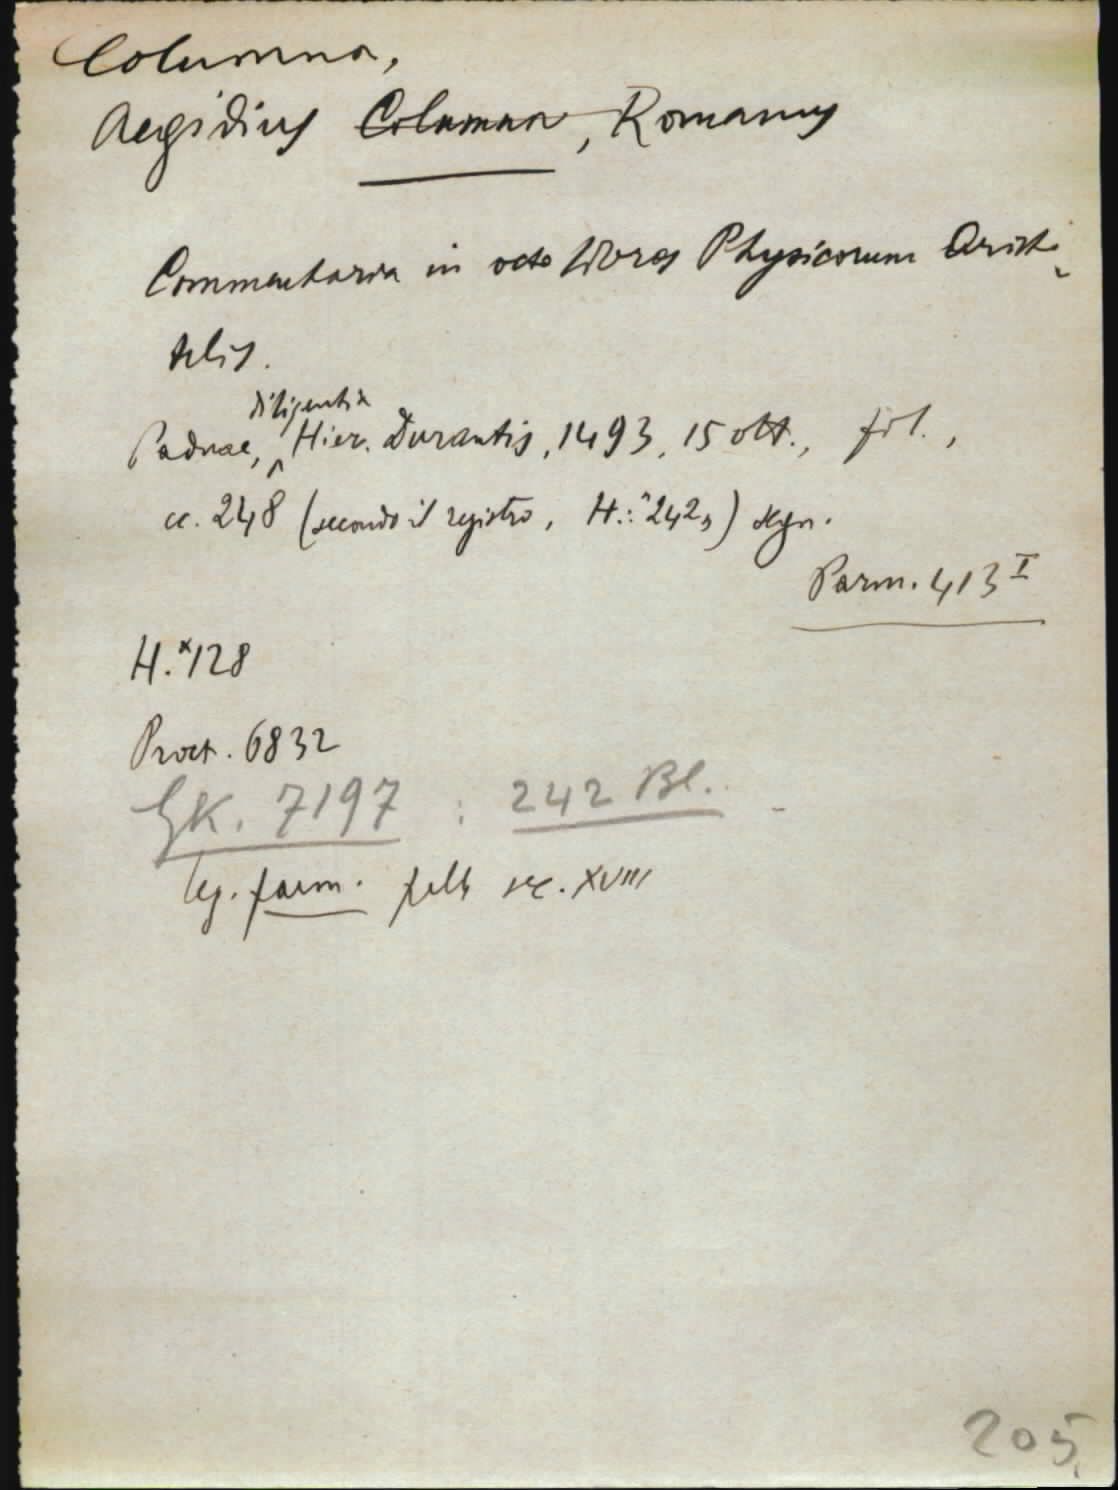 Columna,
Aegidius Columna, Romanus
Commentaria in octo libros Physicorum Aristo-
telis.
diligentia
Paduae, Hier. Durantis, 1493, 15 ott., fol.,
cc. 248 (secondo il registro, H.: "242„)
Parm. 413 I
H.*128
Proct. 6832
GK. 7197 : 242 Bl.
leg. parm. pelle sec. XVIII
205